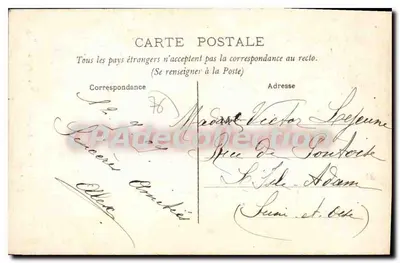 CARTE POSTALE
Tous les pays étrangers n'acceptent pas la correspondance au recto.
(Se renseigner à la Poste)
Correspondance
Adresse
76
Sincères
Amitiés
Madame Victor Lejeune
Rue de Pontoise
L'Isle-Adam
(Seine et Oise)